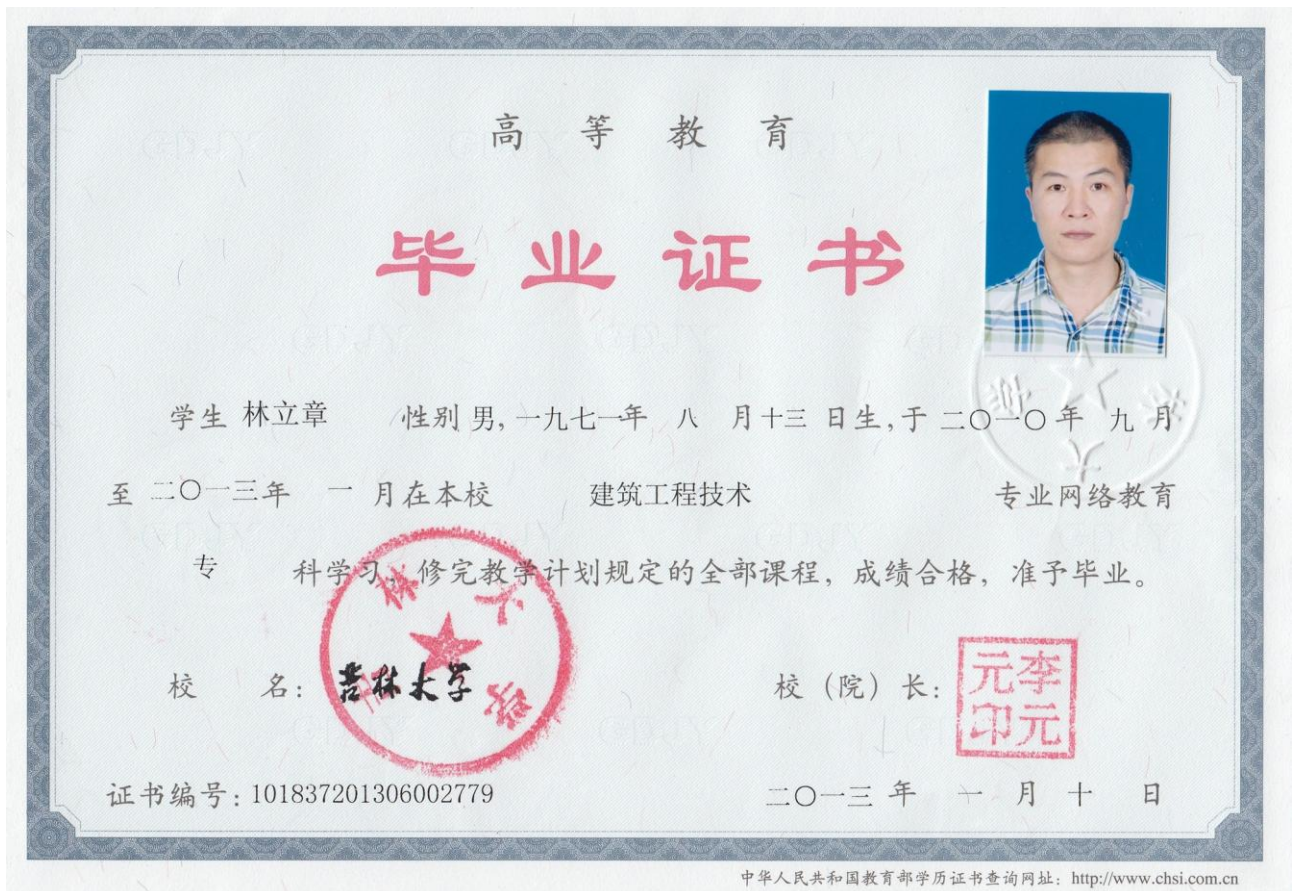 高等教育
毕业证书
学生 林立章 性别 男, 一九七一年 八 月十三 日生,于 二〇一〇年 九 月
至 二〇一三年 一 月在本校 建筑工程技术 专业网络教育
专 科学习，修完教学计划规定的全部课程，成绩合格，准予毕业。
校 名: 吉林大学
吉林大学
校（院）长: 李元元印
证书编号: 101837201306002779 二〇一三 年 一 月 十 日
中华人民共和国教育部学历证书查询网址: http://www.chsi.com.cn